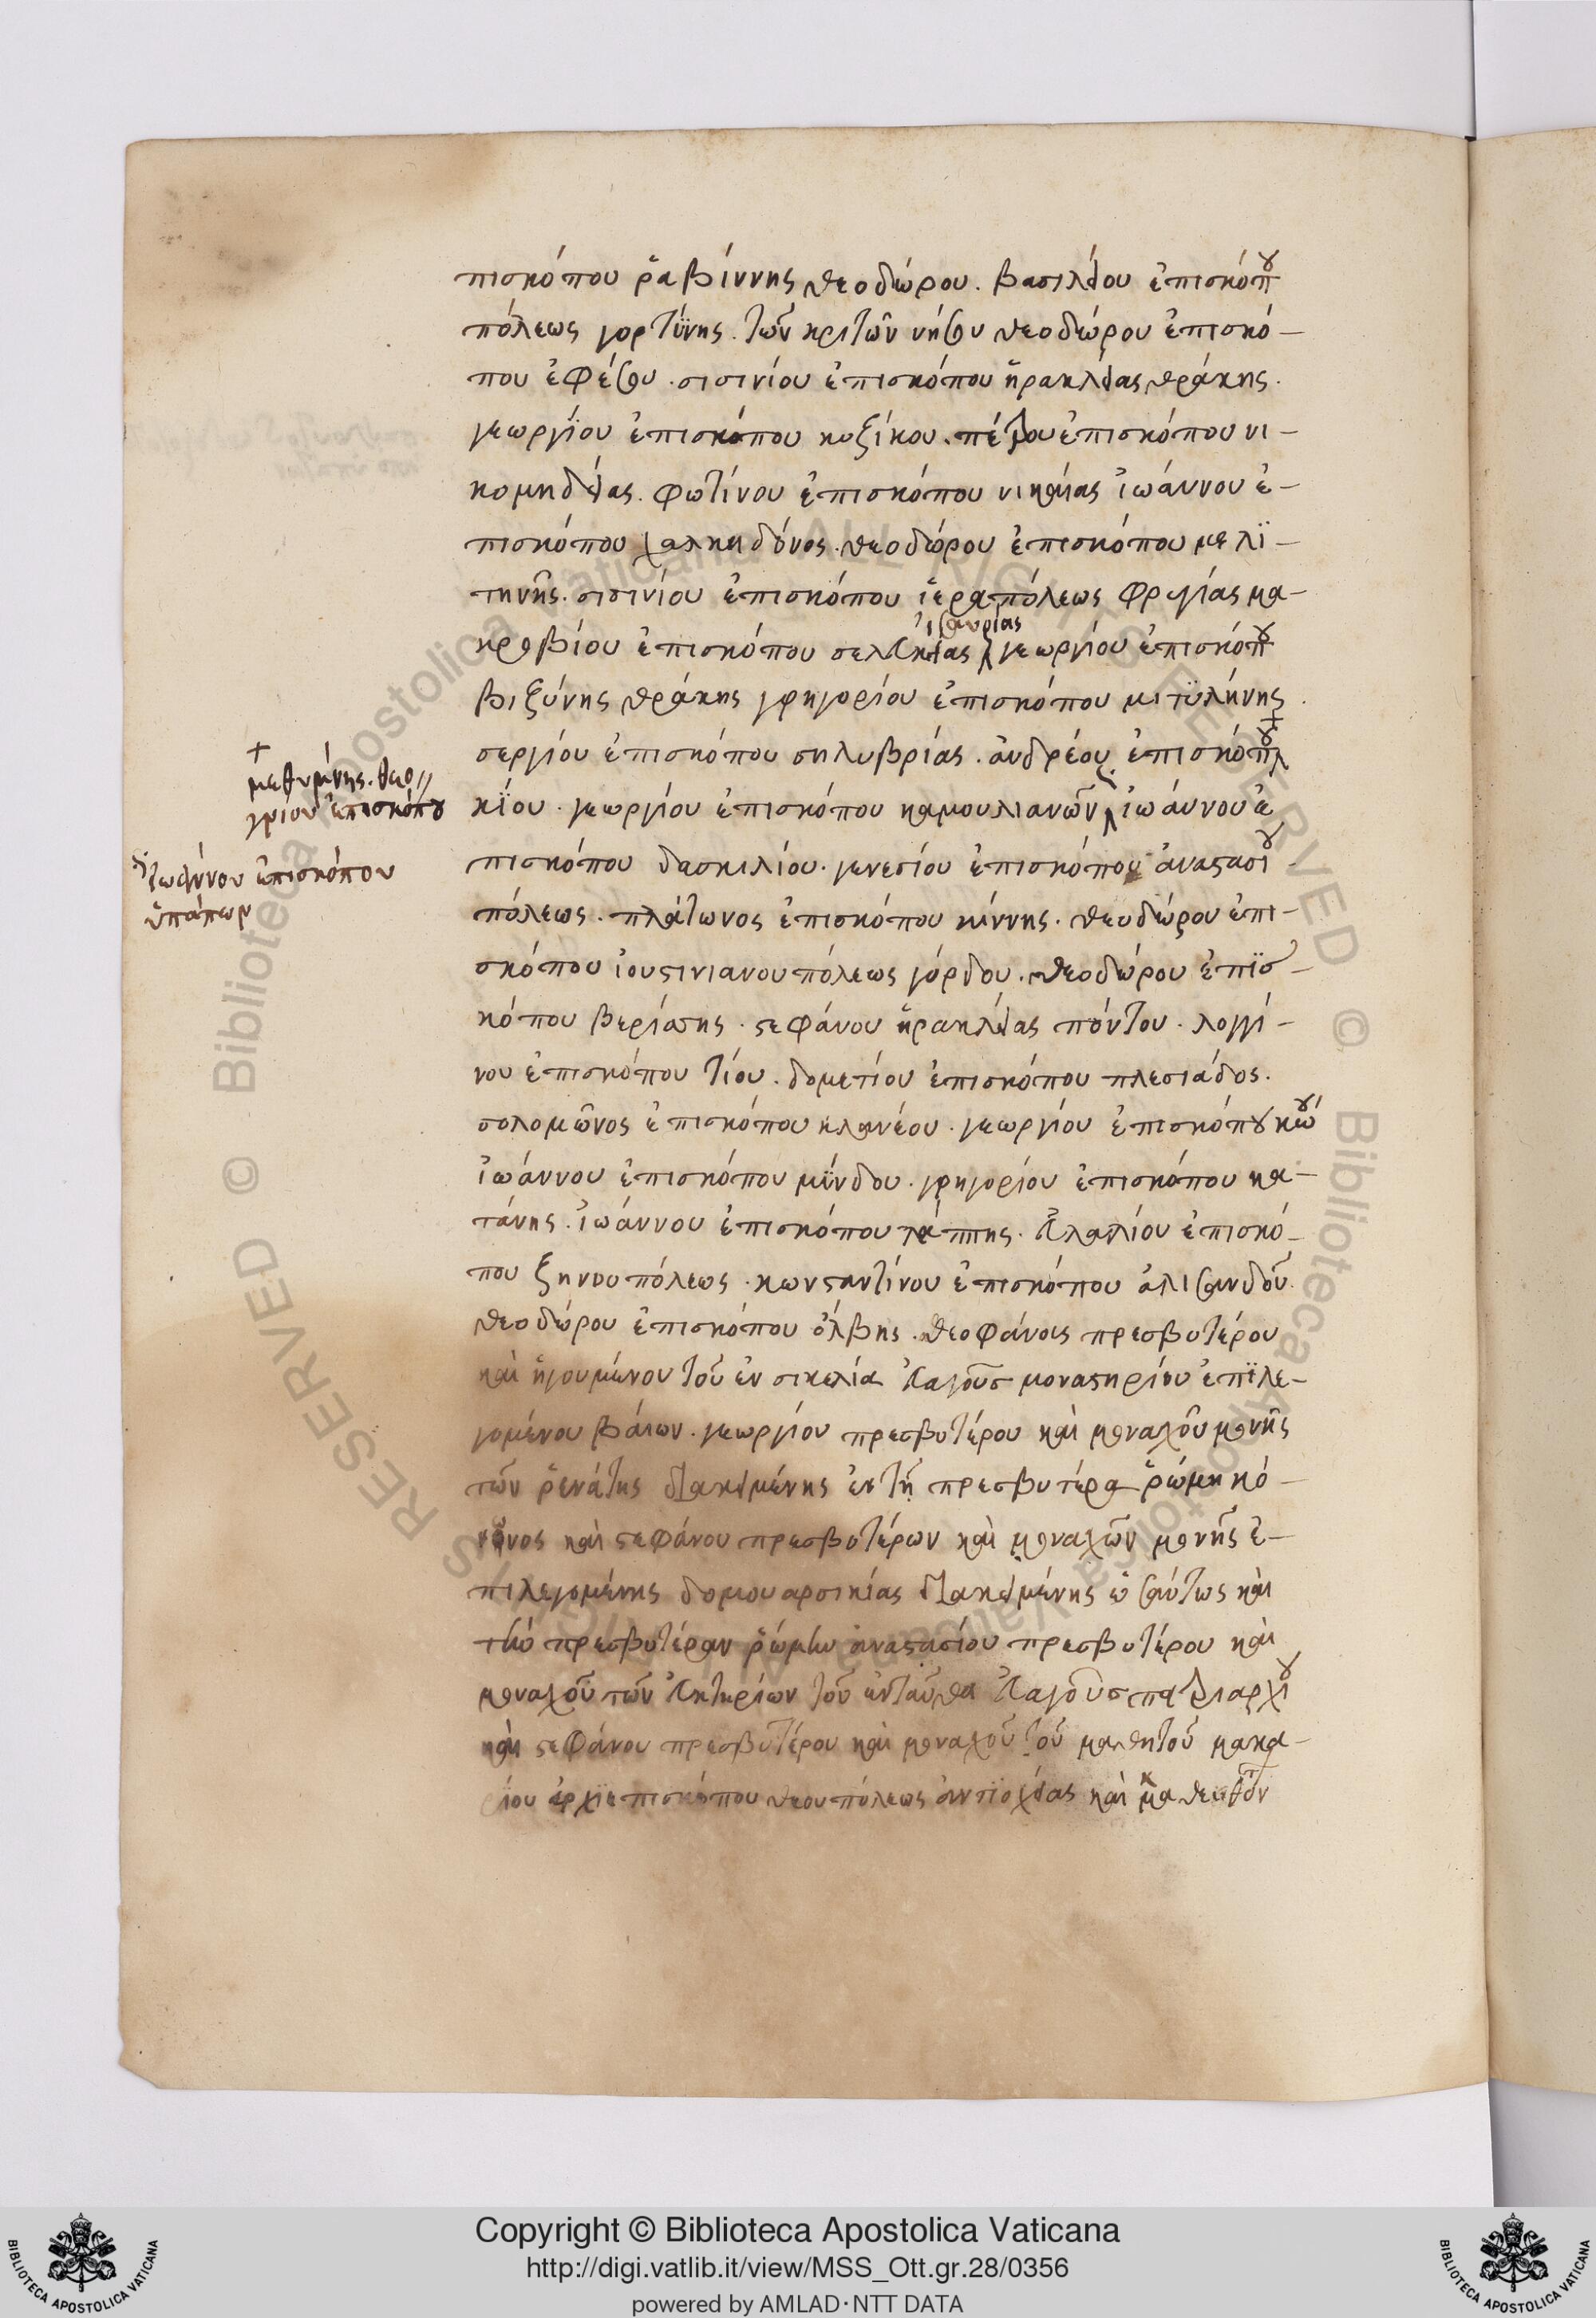 πισκόπου ῥαβίννης θεοδώρου. βασιλείου ἐπισκόπου
πόλεως γορτΰνης. τῶν κριτῶν νήσου θεοδώρου ἐπισκό-
που ἐφέσου. σισινίου ἐπισκόπου ἡρακλείας θράκης.
γεωργίου ἐπισκόπου κυζίκου. πέτρου ἐπισκόπου νι-
κομηδείας. φωτίνου ἐπισκόπου νικαίας ἰωάννου ἐ-
πισκόπου χαλκηδόνος. θεοδώρου ἐπισκόπου μελϊ-
τηνῆς. σισινίου ἐπισκόπου ἱεραπόλεως φρυγίας μα-
ἰσαυρίας
κροβίου ἐπισκόπου σελευκείας γεωργίου ἐπισκόπου
βιζύνης θράκης γρηγορίου ἐπισκόπου μιτϋλήνης
σεργίου ἐπισκόπου σηλυβρίας. ἀνδρέου ἐπισκόπου
μεθυμνης. θεο//
γρίου ἐπισκόπου
κίου. γεωργίου ἐπισκόπου καμουλιανῶν ἰωάννου ἐ
ἰωάννου ἐπισκόπου
ὑπάπων
πισκόπου δασκιλίου. γενεσίου ἐπισκόπου ἀναστασιου
πόλεως. πλάτωνος ἐπισκόπου κίννης. θεοδώρου ἐπι-
σκόπου ἰουστινιανουπόλεως γόρδου. θεοδώρου ἐπϊσ-
κόπου βερίσσης. στεφάνου ἡρακλείας πόντου. λογγί-
νου ἐπισκόπου τίου. δομετίου ἐπισκόπου πλεσιάδος.
σολομῶνος ἐπισκόπου κλανέου. γεωργίου ἐπισκόπου κώου
ἰωάννου ἐπισκόπου μΰνδου. γρηγορίου ἐπισκόπου κα-
τάνης. ἰωάννου ἐπισκόπου λάππης. εὐλαλίου ἐπισκό-
που ζηνουπόλεως. κωνσταντίνου ἐπισκόπου ἀλισανδοῦ.
θεοδώρου ἐπισκόπου ὀλβης. θεοφάνους πρεσβυτέρου
καὶ ἡγουμένου τοῦ ἐν σικελία εὐαγοῦς μοναστηρίου ἐπϊλε-
γομένου βάιων. γεωργίου πρεσβυτέρου καὶ μοναχοῦ μονῆς
τῶν ῥενάτης διακειμένης ἐν τῇ πρεσβυτέρα ῥώμη κό-
νωνος καὶ στεφάνου πρεσβυτέρων καὶ μοναχῶν μονῆς ἐ-
πιλεγομένης δομουαρσικίας διακειμένης ὡσαύτως κατὰ
τὴν πρεσβυτέραν ῥώμην ἀναστασίου πρεσβυτέρου καὶ
μοναχοῦ τῶν εὐκτηρίων τοῦ ἐνταῦθα εὐαγοῦς πατριαρχίου
καὶ στεφάνου πρεσβυτέρου καὶ μοναχοῦ τοῦ μαθητοῦ μακα-
ρίου ἀρχϊεπισκόπου θεουπόλεως ἀντϊοχείας καὶ